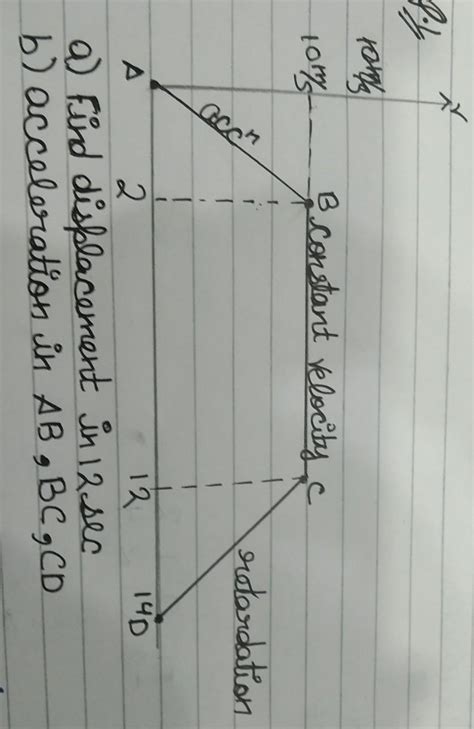 Q.1
10m/s
10m/s
B constant velocity C
accⁿ
retardation
A 2 12 14 D
a) Find displacement in 12 sec
b) acceleration in AB, BC, CD